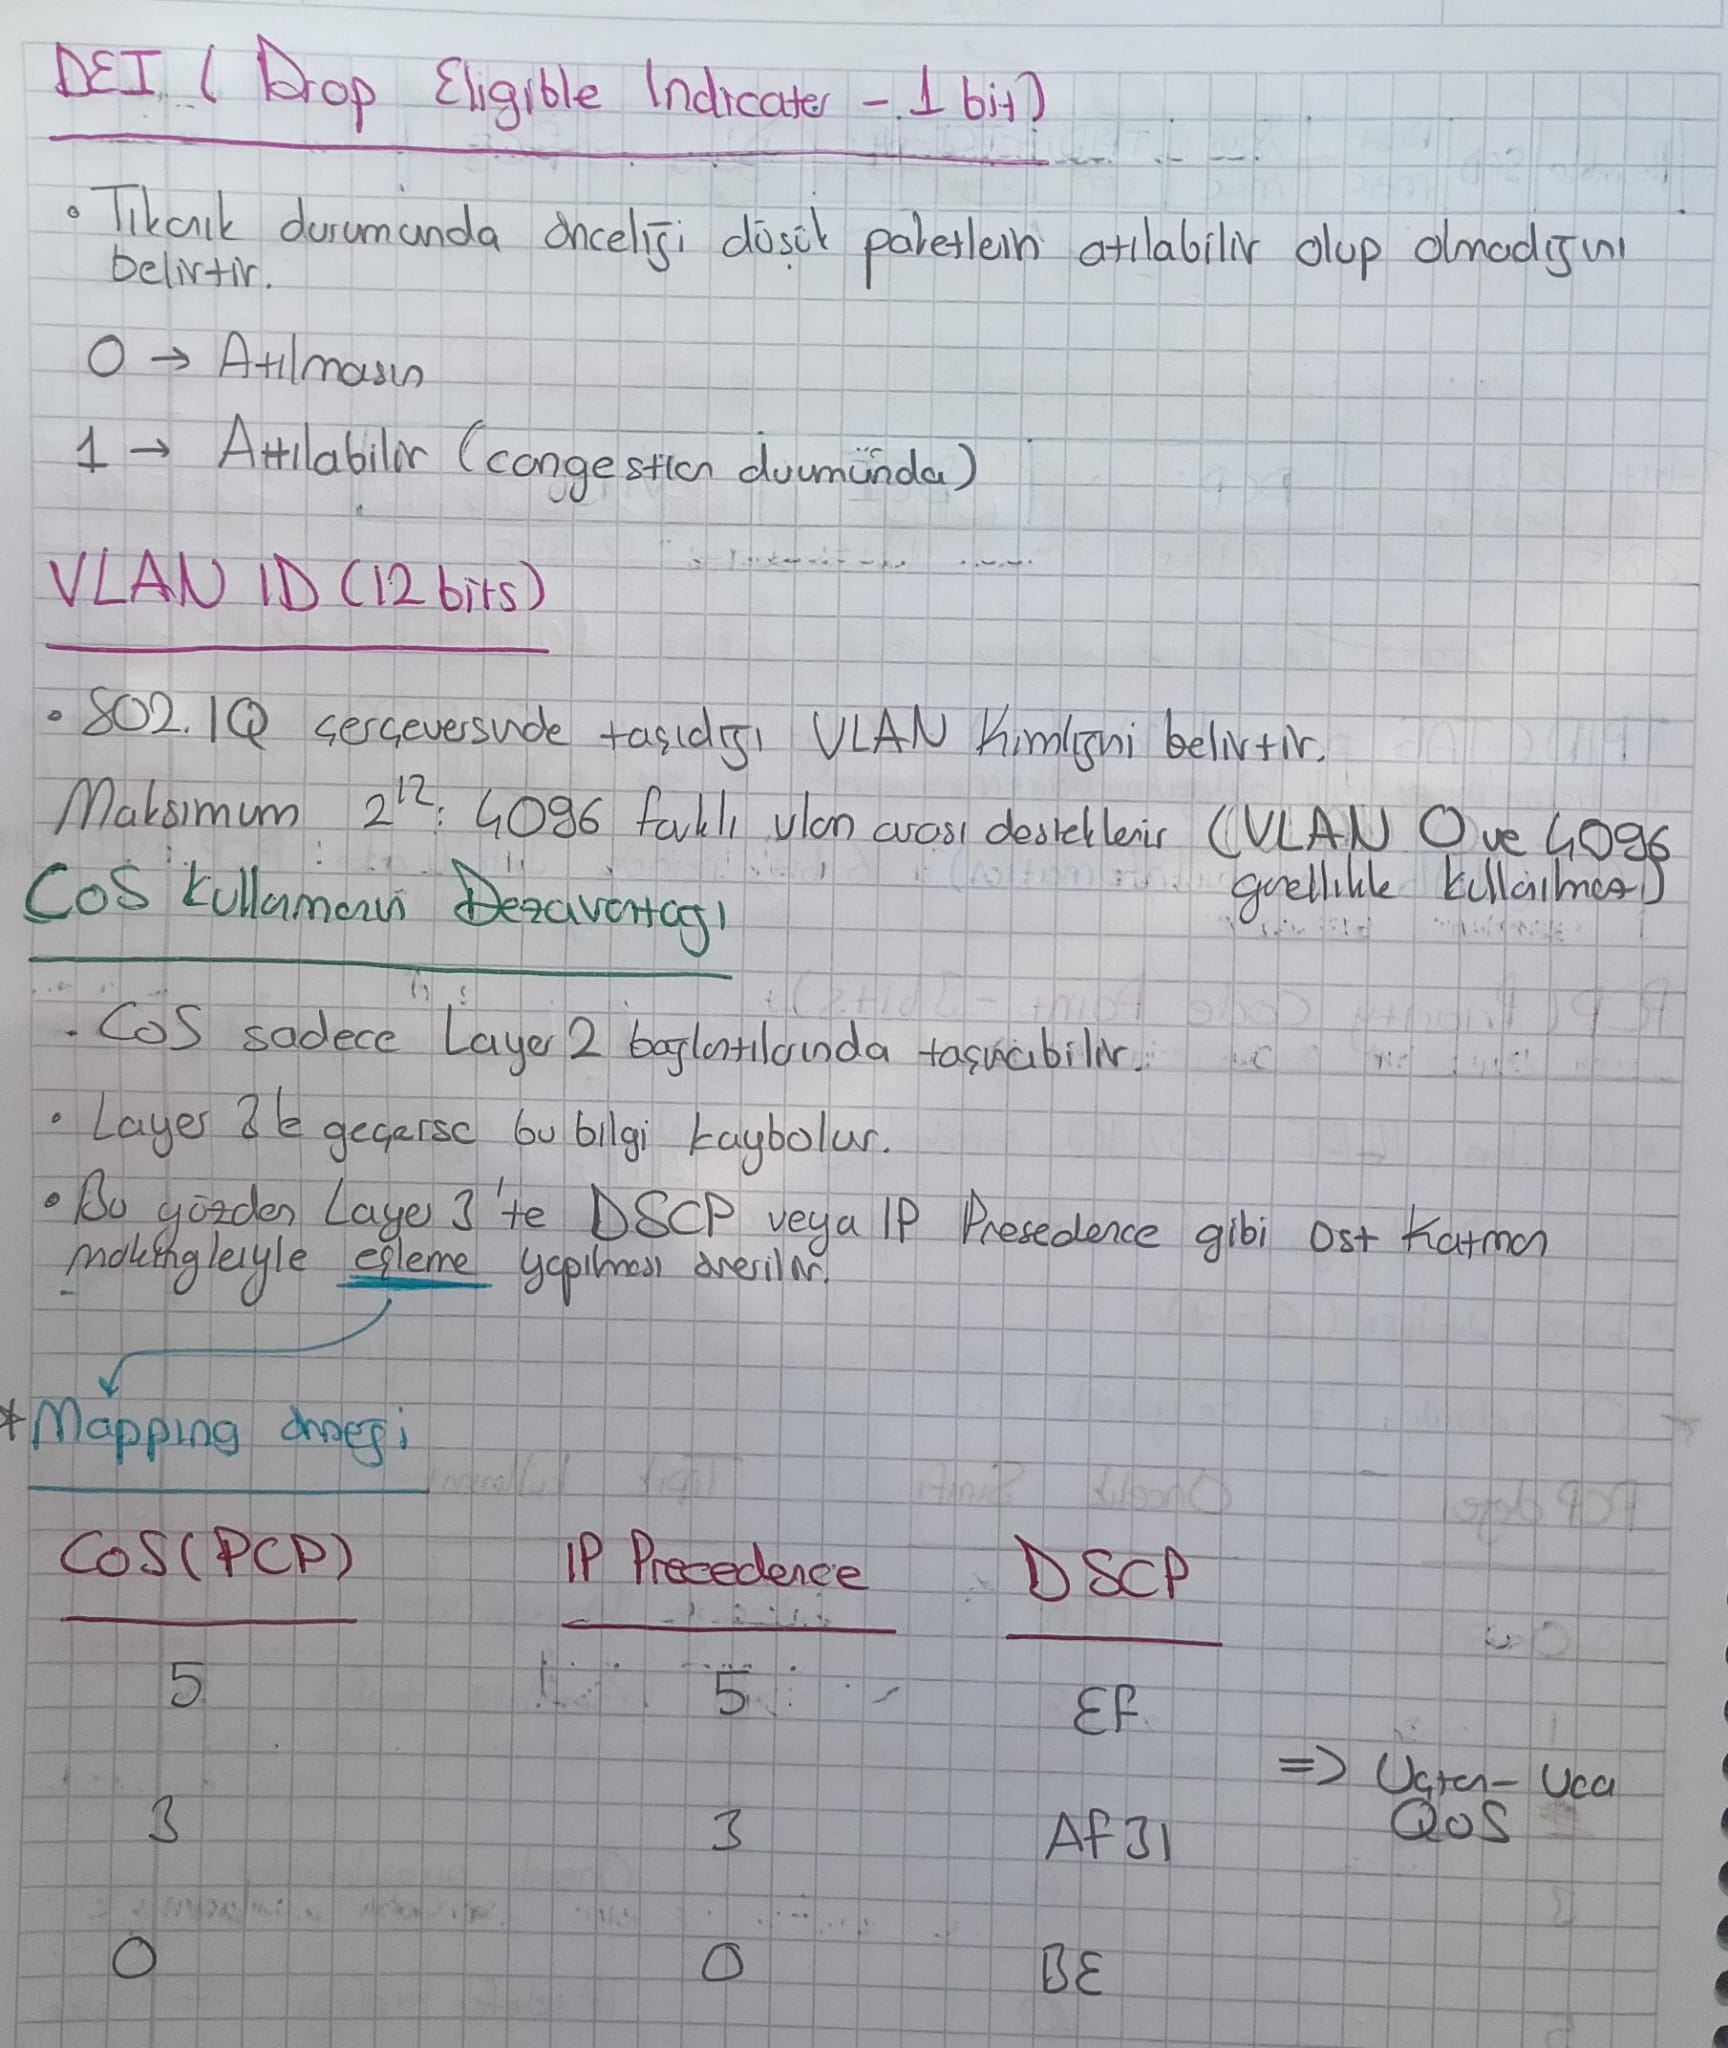 DEI ( Drop Eligible Indicater - 1 bit)
• Tıkanık durumunda önceliği düşük paketlerin atılabilir olup olmadığını
belirtir.
0 → Atılmasın
1 → Attılabilir (congestion durumunda)
VLAN ID (12 bits)
• 802.1Q çerçeversinde taşıdığı VLAN Kimliğini belirtir.
Maksimum 2¹²: 4096 farklı vlan arası desteklenir (VLAN 0 ve 4096
genellikle kullanılmaz)
CoS Kullanmanın Dezavantagı
• CoS sadece Layer 2 bağlantılarında taşınabilir.
• Layer 3'e geçerse bu bilgi kaybolur.
• Bu yüzden Layer 3'te DSCP veya IP Presedence gibi üst Katman
markingleriyle eşleme yapılması önerilir.
* Mapping örneği
CoS(PCP) IP Precedence DSCP
5 5 EF
=> Uçtan-Uca
QoS
3 3 AF31
0 0 BE